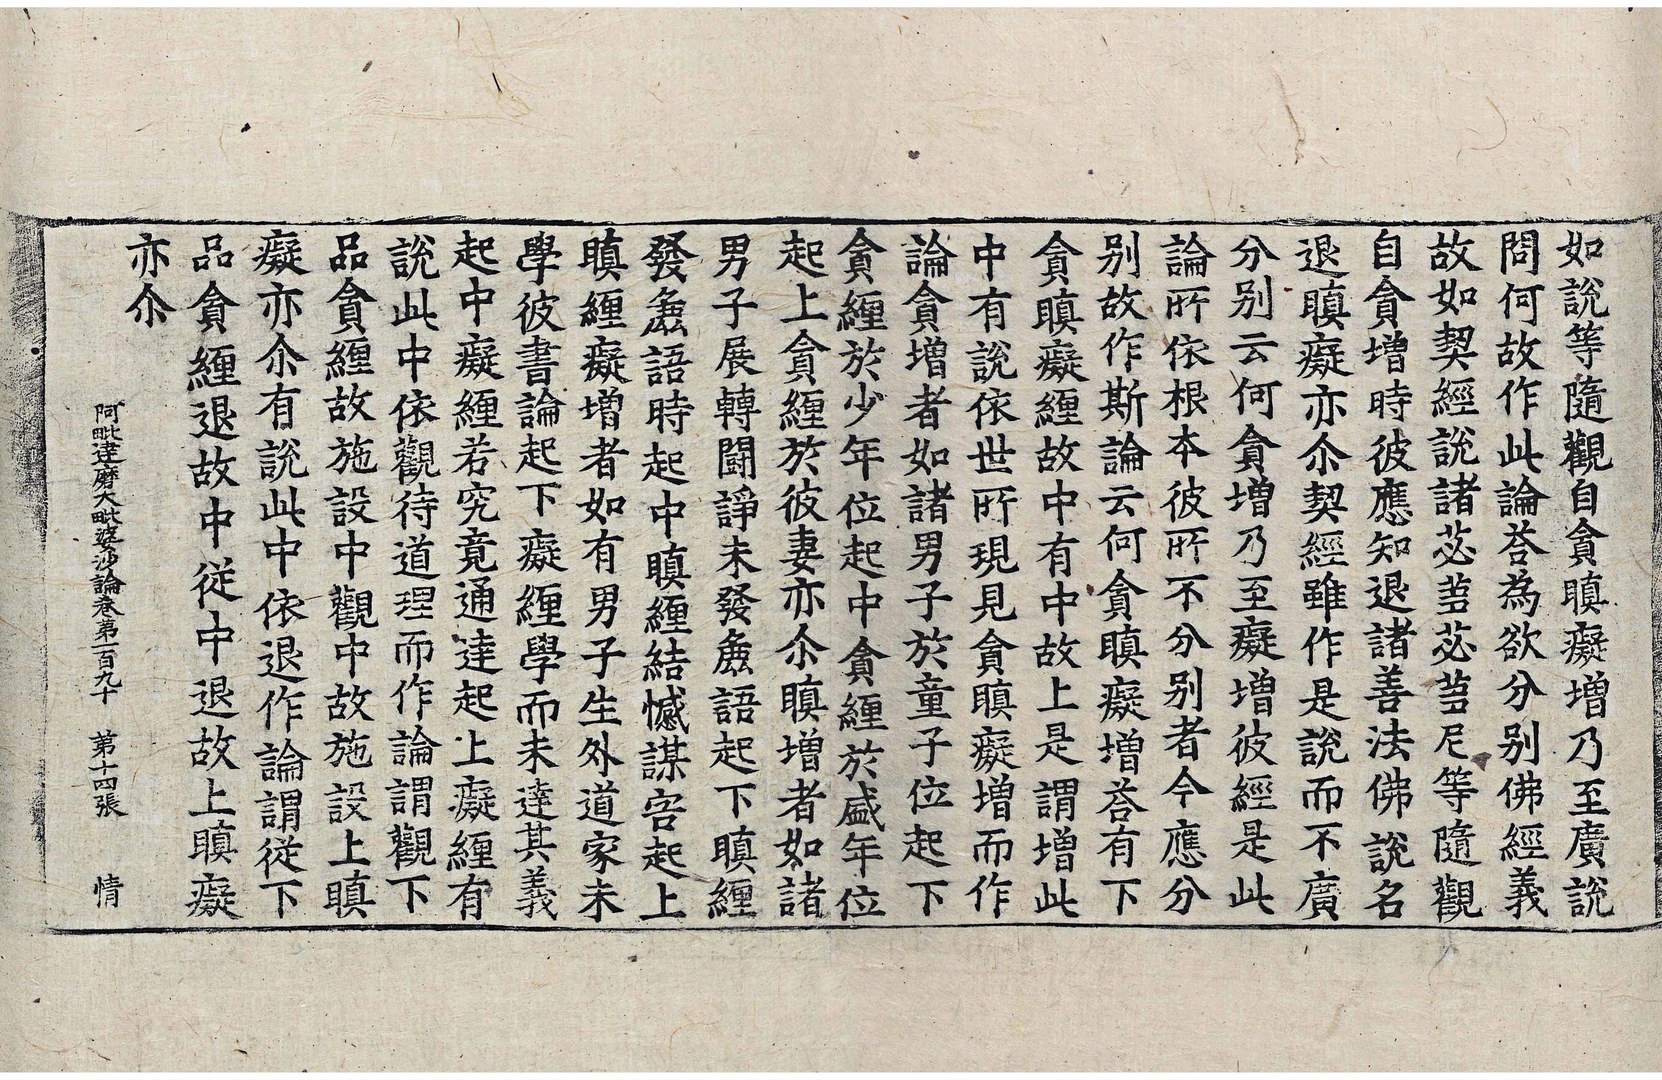 如說等隨觀自貪瞋癡增乃至廣說
問何故作此論荅為欲分别佛經義
故如契經說諸苾蒭苾蒭尼等隨觀
自貪增時彼應知退諸善法佛說名
退瞋癡亦尒契經雖作是說而不廣
分别云何貪增乃至癡增彼經是此
論所依根本彼所不分别者今應分
别故作斯論云何貪瞋癡增荅有下
貪瞋癡纏故中有中故上是謂增此
中有說依世所現見貪瞋癡增而作
論貪增者如諸男子於童子位起下
貪纏於少年位起中貪纏於盛年位
起上貪纏於彼妻亦尒瞋增者如諸
男子展轉鬪諍未發麁語起下瞋纏
發麁語時起中瞋纏結憾謀害起上
瞋纏癡增者如有男子生外道家未
學彼書論起下癡纏學而未達其義
起中癡纏若究竟通達起上癡纏有
說此中依觀待道理而作論謂觀下
品貪纏故施設中觀中故施設上瞋
癡亦尒有說此中依退作論謂從下
品貪纏退故中從中退故上瞋癡
亦尒
阿毗達磨大毗婆沙論卷第一百九十 第十四張 情